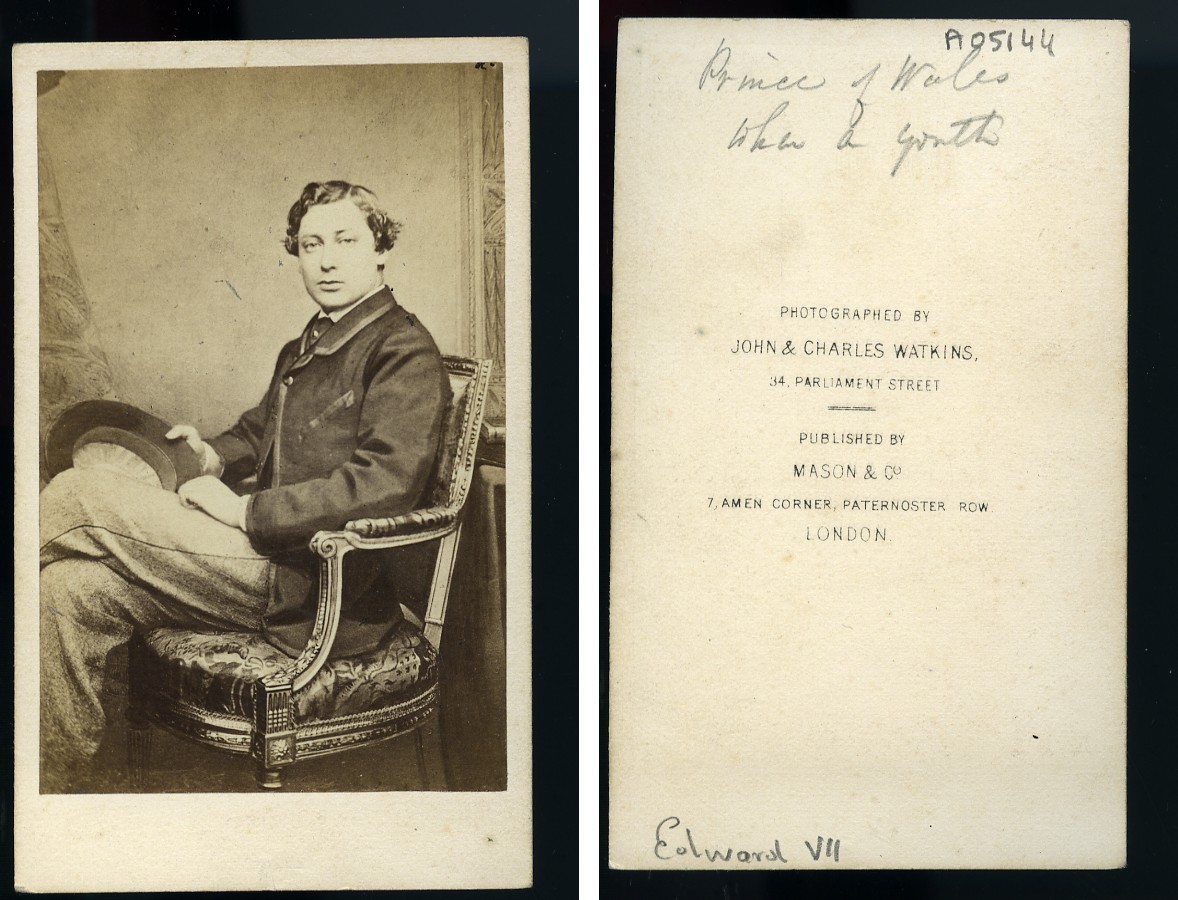 A05144
Prince of Wales
when a youth
PHOTOGRAPHED BY
JOHN & CHARLES WATKINS,
34, PARLIAMENT STREET
PUBLISHED BY
MASON & Co
7, AMEN CORNER, PATERNOSTER ROW
LONDON
Edward VII